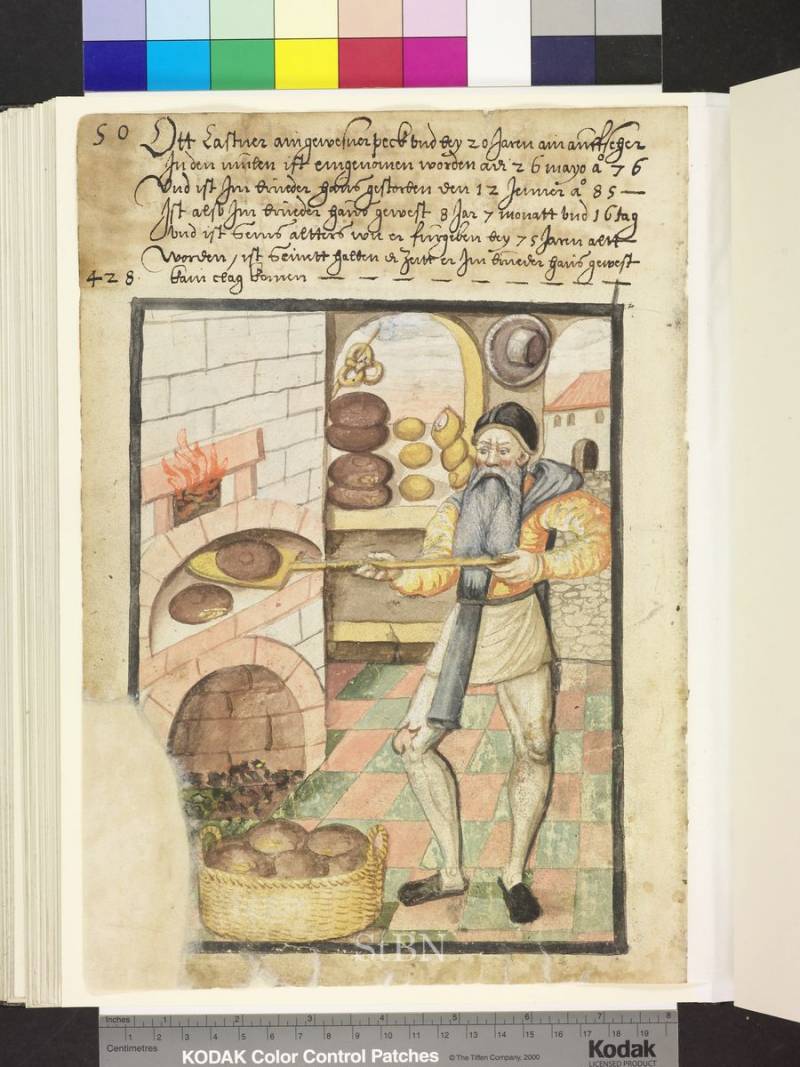 50
Ott Castner ain gewesner peck vnd bey 20 Jaren ain auffseher
In den mülen ist eingenomen worden adi 26 mayo aº 76
Vnd ist Im brueder haus gestorben den 12 Jenner aº 85 —
Ist also Im brueder haus gewest 8 Jar 7 monatt vnd 16 tag
vnd ist seins altters wie er fürgeben bey 75 Jaren altt
Worden / ist seinett halben die Zeitt er Im brueder haus gewest
428
kain clag komen — — — — — — — —
StBN
Inches 1 2 3 4 5 6 7 8
Centimetres 1 2 3 4 5 6 7 8 9 10 11 12 13 14 15 16 17 18 19
KODAK Color Control Patches © The Tiffen Company, 2000 Kodak
LICENSED PRODUCT